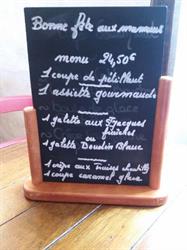 Bonne fête aux mamans
menu 24,50€
1 coupe de pétillant
1 assiette gourmande
1 galette aux St Jacques
ou
1 galette Boudin Blanc
1 crêpe aux fraises chantilly
1 coupe caramel glace